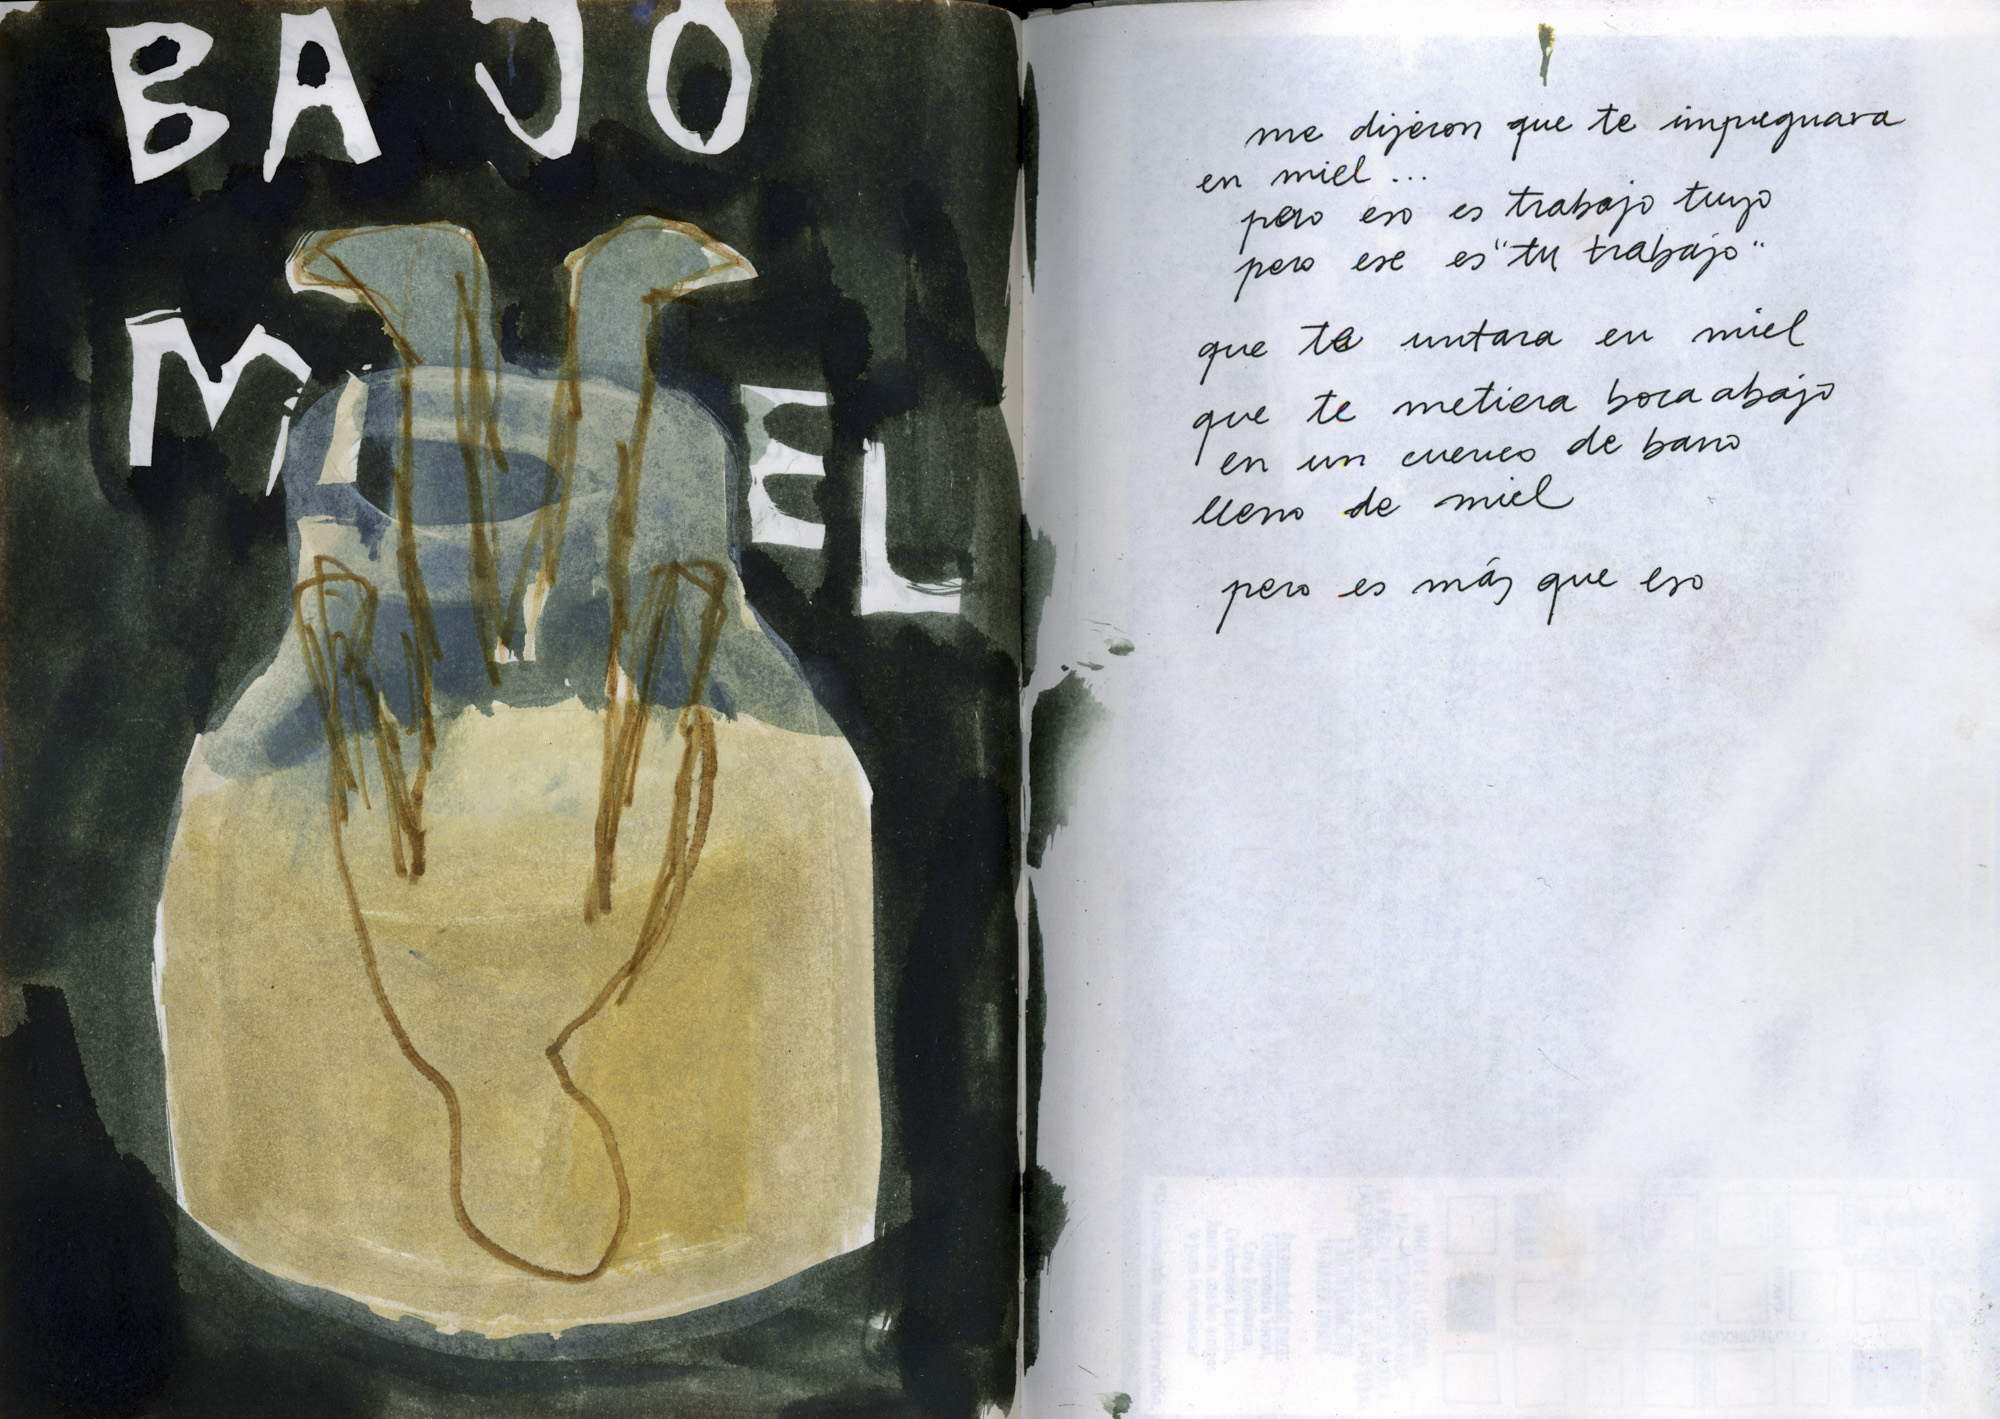 BAJO
MiEL
me dijeron que te impregnara
en miel...
pero eso es trabajo tuyo
pero ese es "tu trabajo"
que te untara en miel
que te metiera boca abajo
en un cuenco de barro
lleno de miel
pero es más que eso